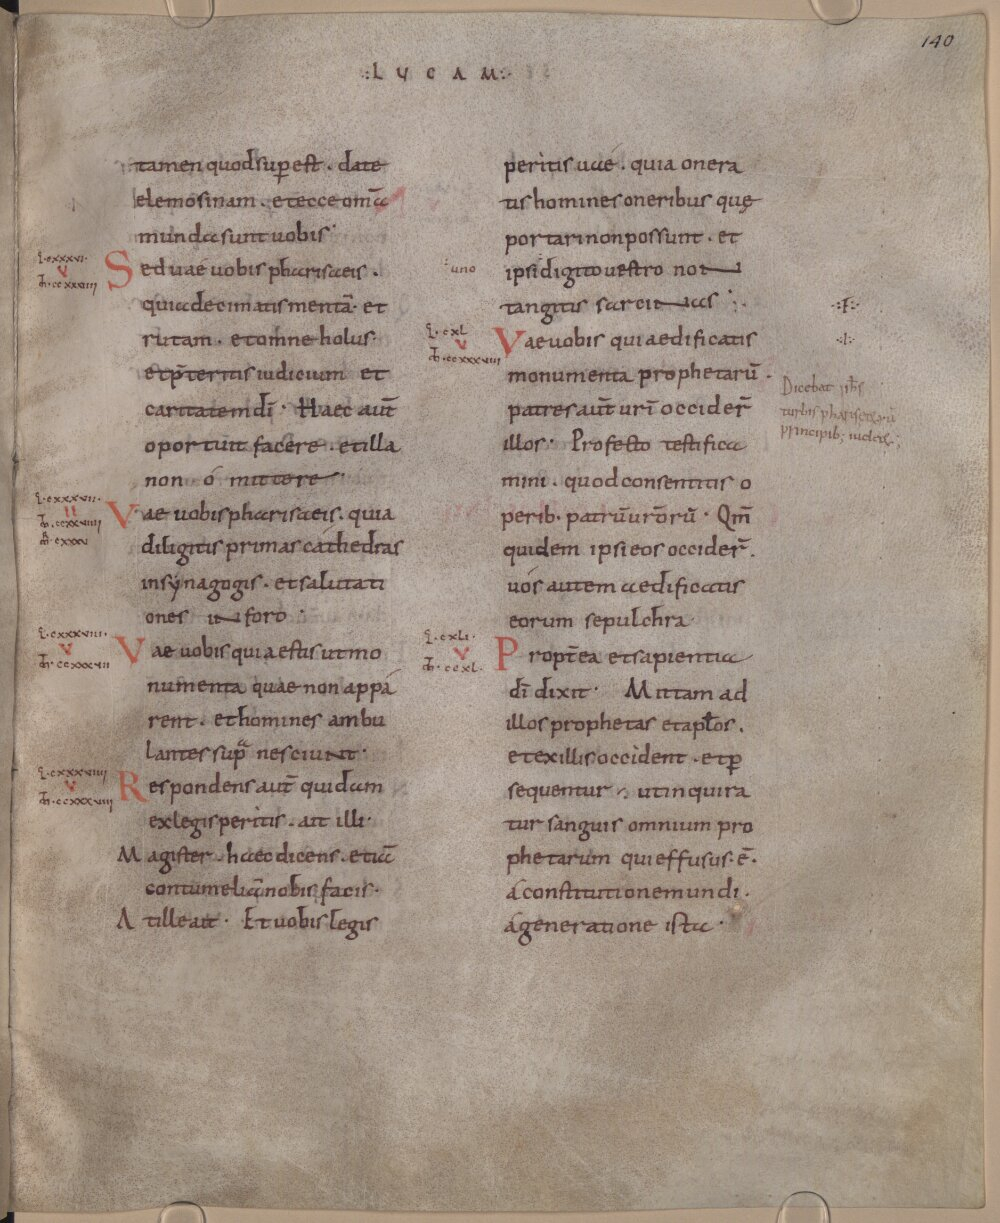 140
:LVCAM:
tamen quod sup est . date
elemosinam . et ecce om̄a
munda sunt uobis·
L·cxxxvi·
V
Sed uae uobis pharisaeis .
quia decimatis mentā· et
rutam . et omne holus·
et p̄teritis iudicium et
caritatem dī · Haec aut̄
oportuit facere . et illa
non ó mittere
L·cxxxvii·
II
m̄·cxxxv
Vae uobis pharisaeis . quia
diligitis primas cathedras
in synagogis . et salutati
ones in foro :
L·cxxxviii·
V
Vae uobis qui aestis ut mo
numenta quae non appá
rent . et homines ambu
lantes sup̄a nesciunt·
L·cxxxviiii
V
Respondens aut̄ quidam
ex legis peritis . ait illi·
Magister . haec dicens . etiā
contumeliā nobis facis·
At ille ait · Et uobis legis
peritis uae . quia onera
tis homines oneribus quę
portari non possunt . et
:uno
ipsi digito uestro non
tangitis sarcinas :·
·:F:·
·:l:·
L·cxl
V
Vae uobis qui aedificatis
monumenta prophetarū .
Dicebat ih̄s
turbis pharisaeorū
principib; iudeor;
patres aut̄ urī occider̄
illos· Profecto testifica
mini . quod consentitis o
perib. patrū urōrū · Qm̄
quidem ipsi eos occider̄.
uós autem aedificatis
eorum sepulchra·
L·cxli·
V
Propt̄ea et sapientia
dī dixit · Mittam ad
illos prophetas et apłos .
et ex illis occident . et p
sequentur ; ut inquira
tur sanguis omnium pro
phetarum qui effusus . ē .
á constitutione mundi .
á generatione ista ·